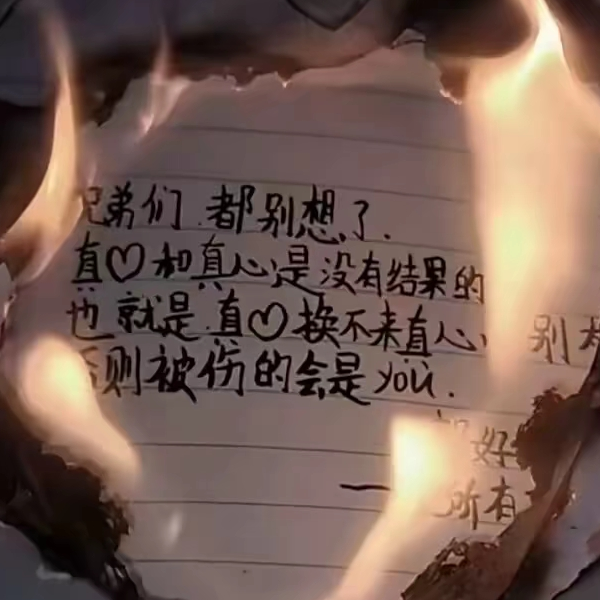 兄弟们.都别想了.
真♡和真心是没有结果的
也就是真♡换不来真心, 别
否则被伤的会是you.
好
一 所有